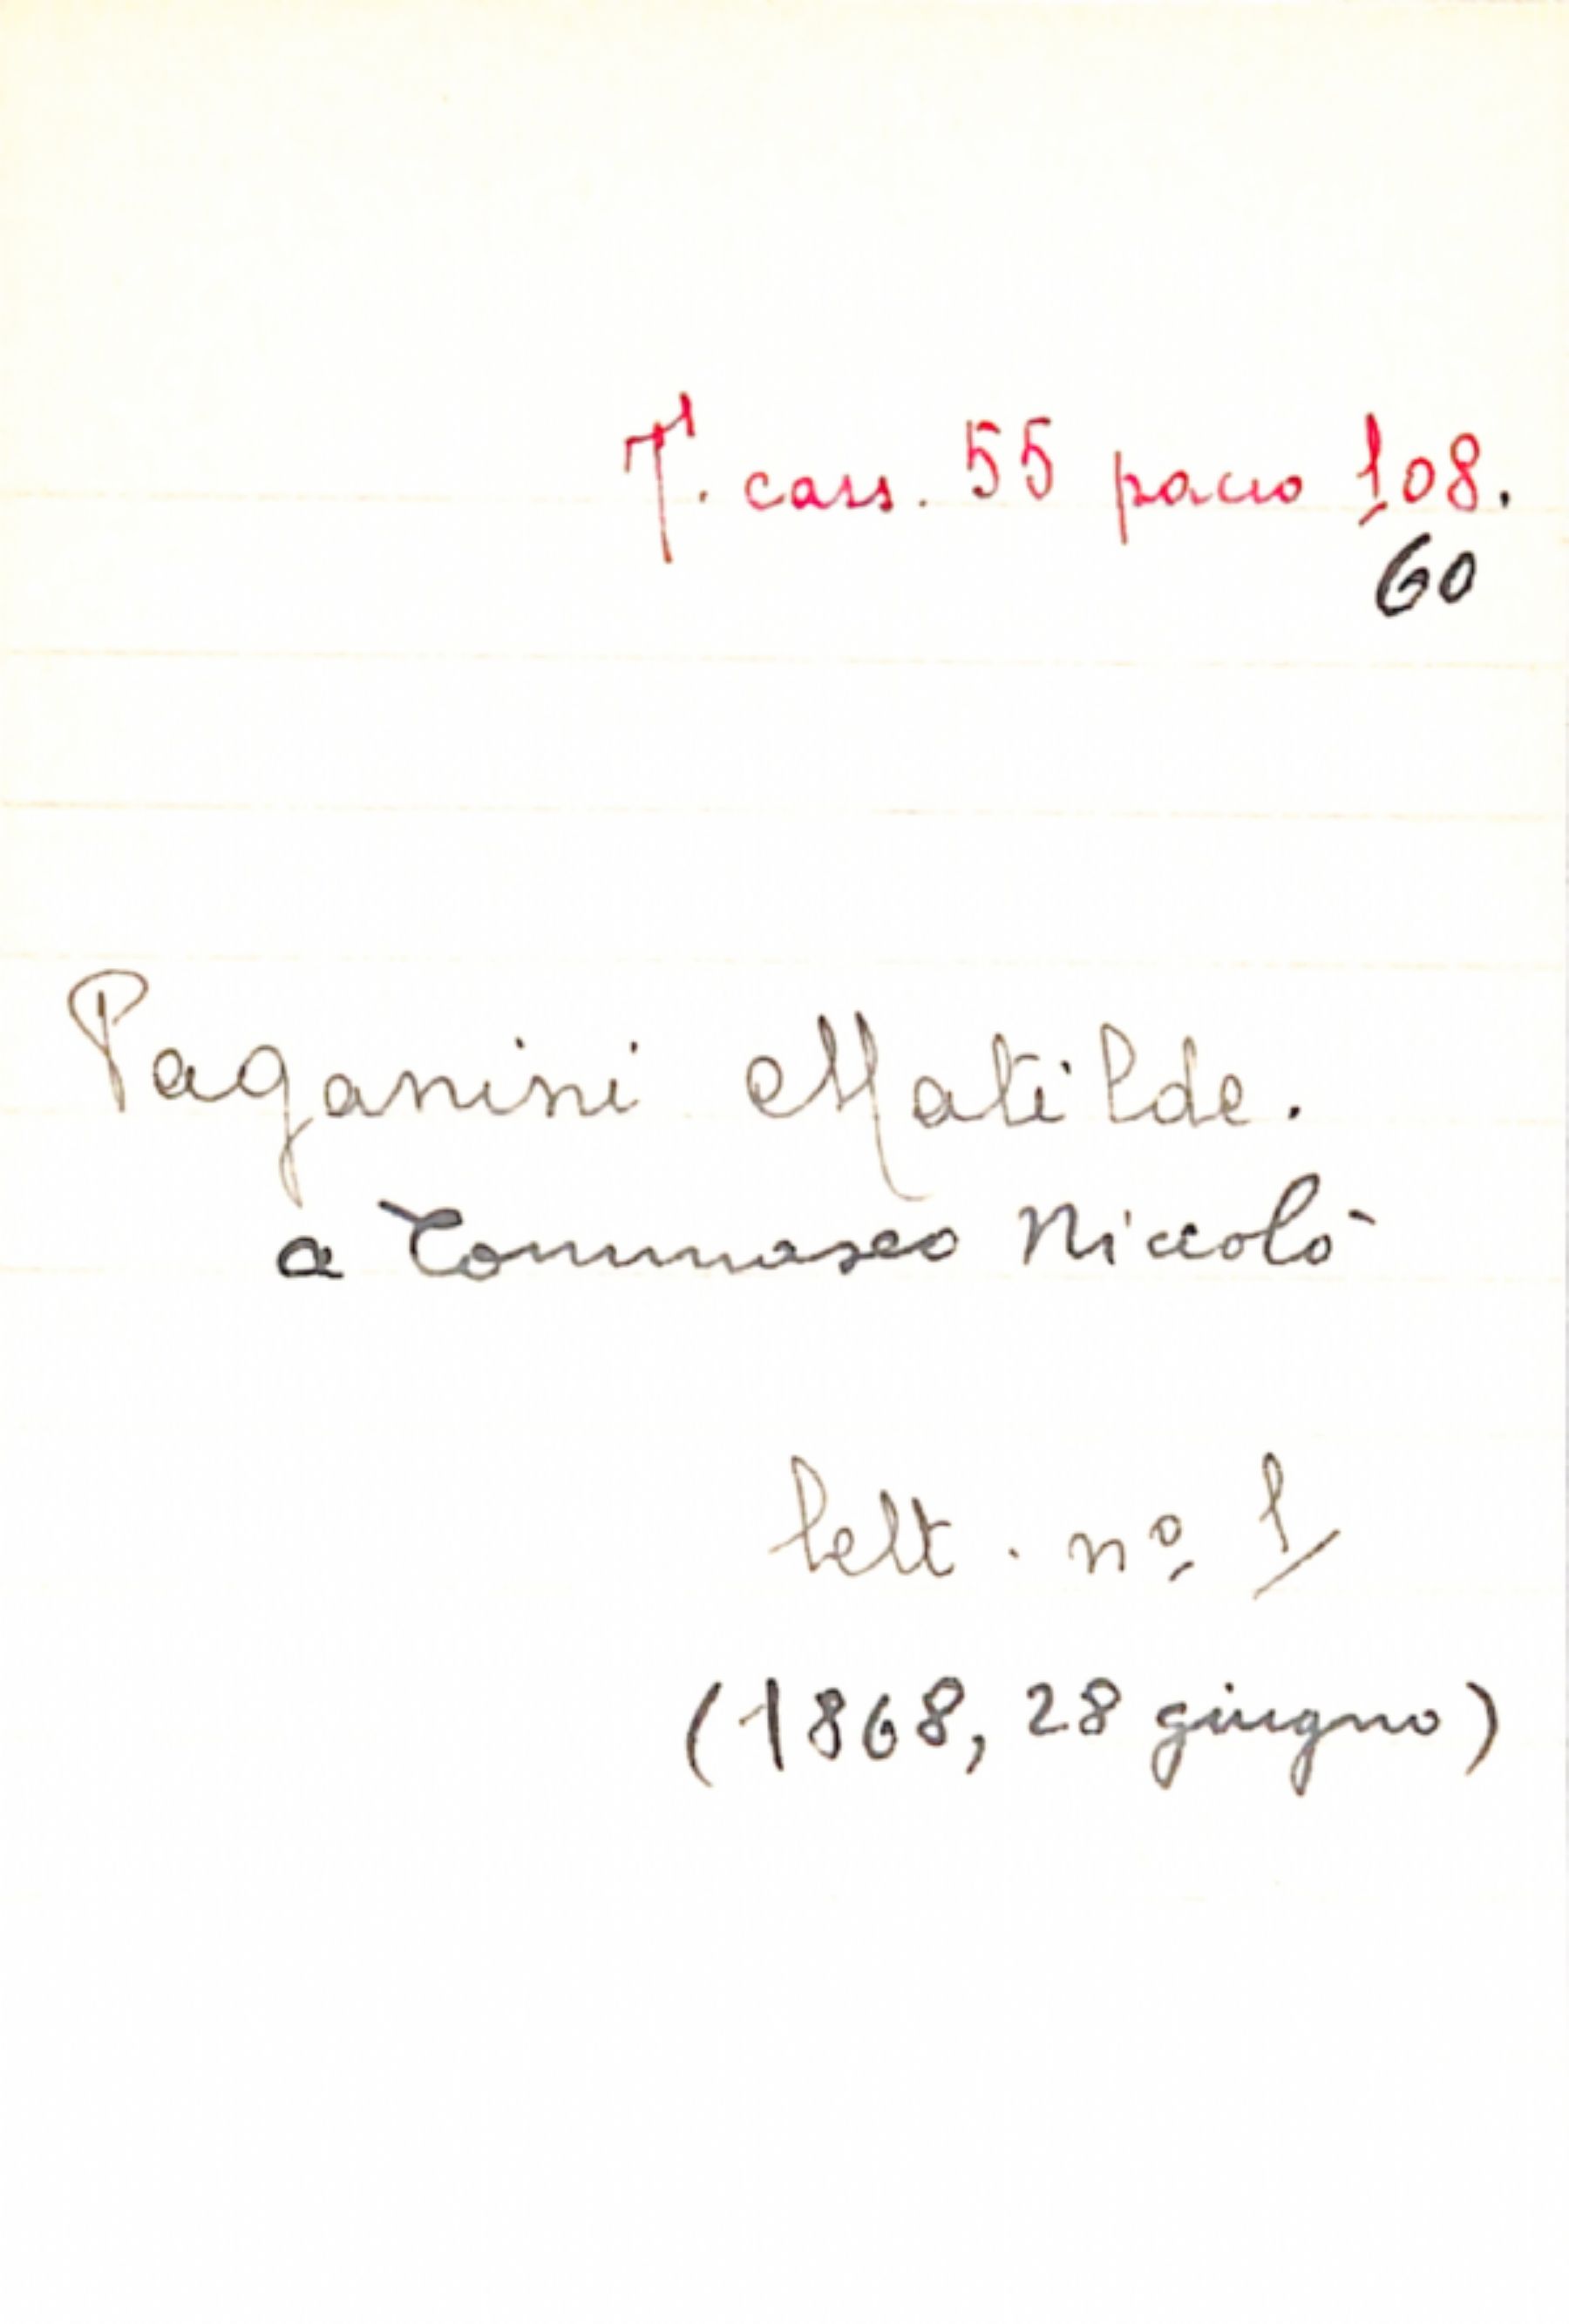 T. cass. 55 pacco 108.
60
Paganini Matilde.
a Tommaseo Niccolò
lett. nº 1
(1868, 28 giugno)